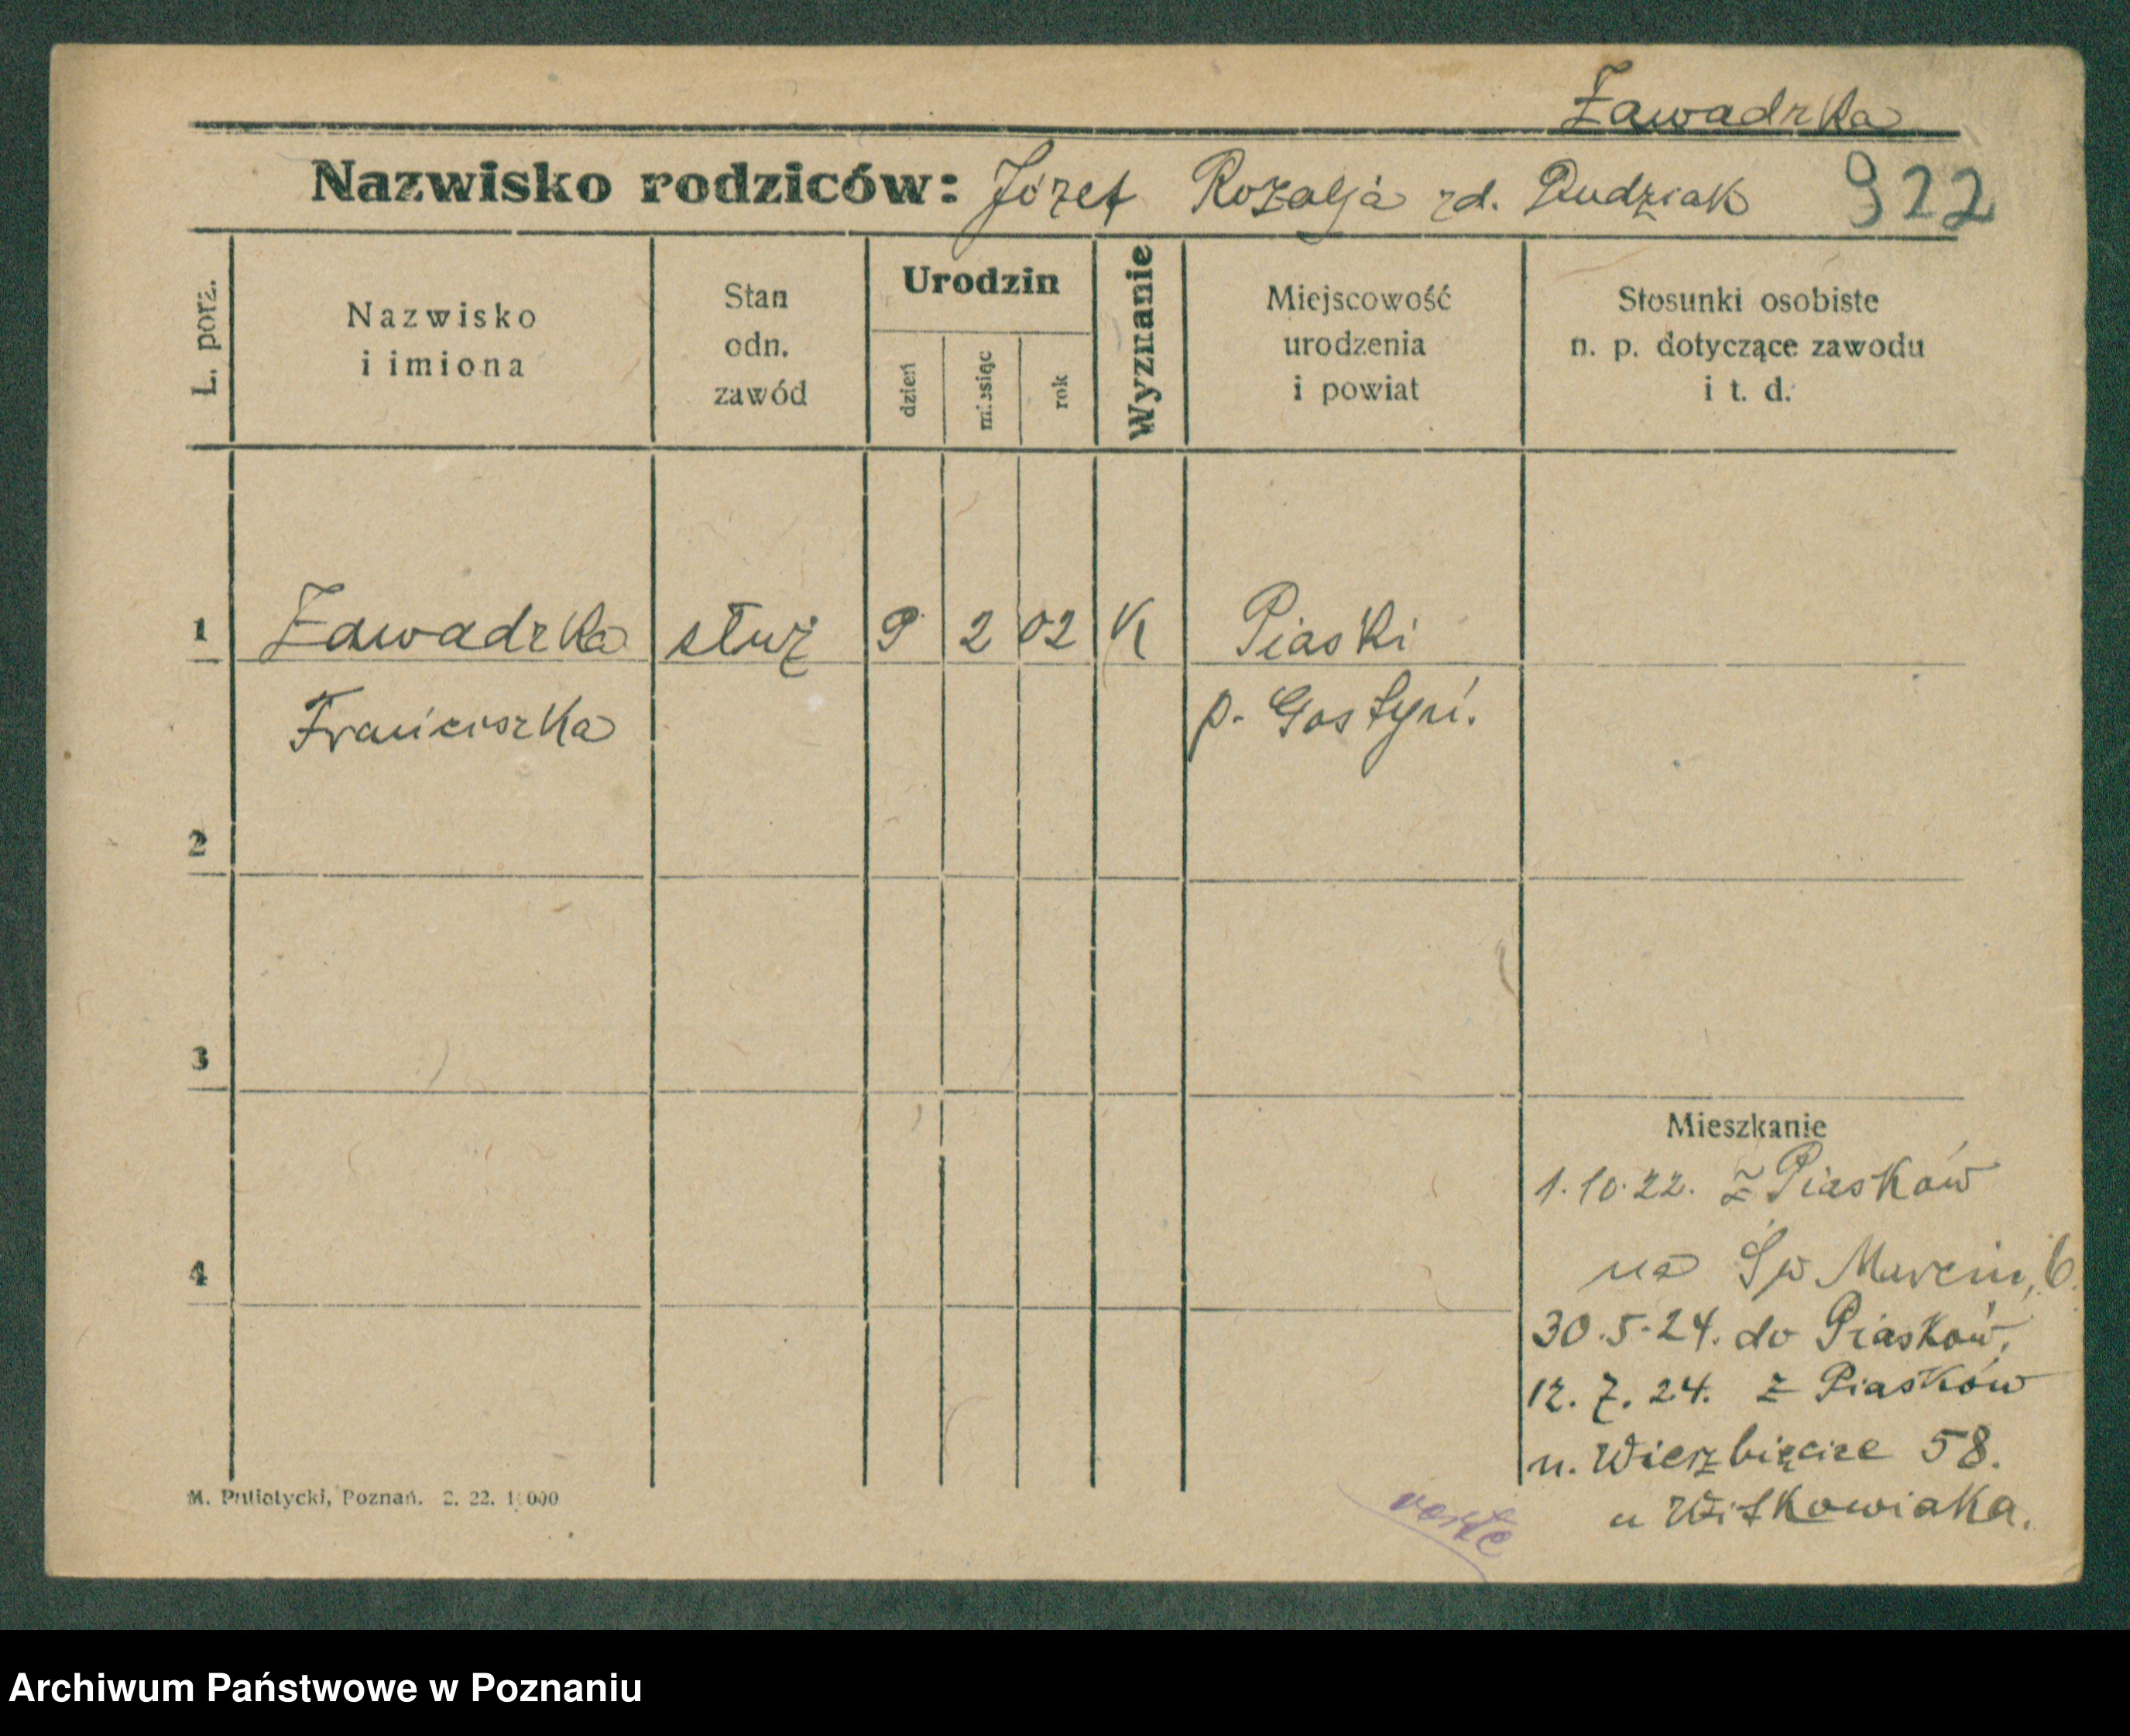 Zawadzka
Nazwisko rodziców: Józef Rozalja zd. Dudziak 922
L. porz.
Nazwisko
i imiona
Stan
odn.
zawód
Urodzin
dzień
miesiąc
rok
Wyznanie
Miejscowość
urodzenia
i powiat
Stosunki osobiste
n. p. dotyczące zawodu
i t. d.
1 Zawadzka służ 9 2 02 K Piaski
Franciszka p. Gostyń.
2
3
4
Mieszkanie
1.10.22. z Piasków
na Św Marcin, 6.
30.5.24. do Piasków,
12.7.24. z Piasków
u. Wierzbięcice 58.
u Witkowiaka.
M. Putiatycki, Poznań. 2. 22.
Archiwum Państwowe w Poznaniu